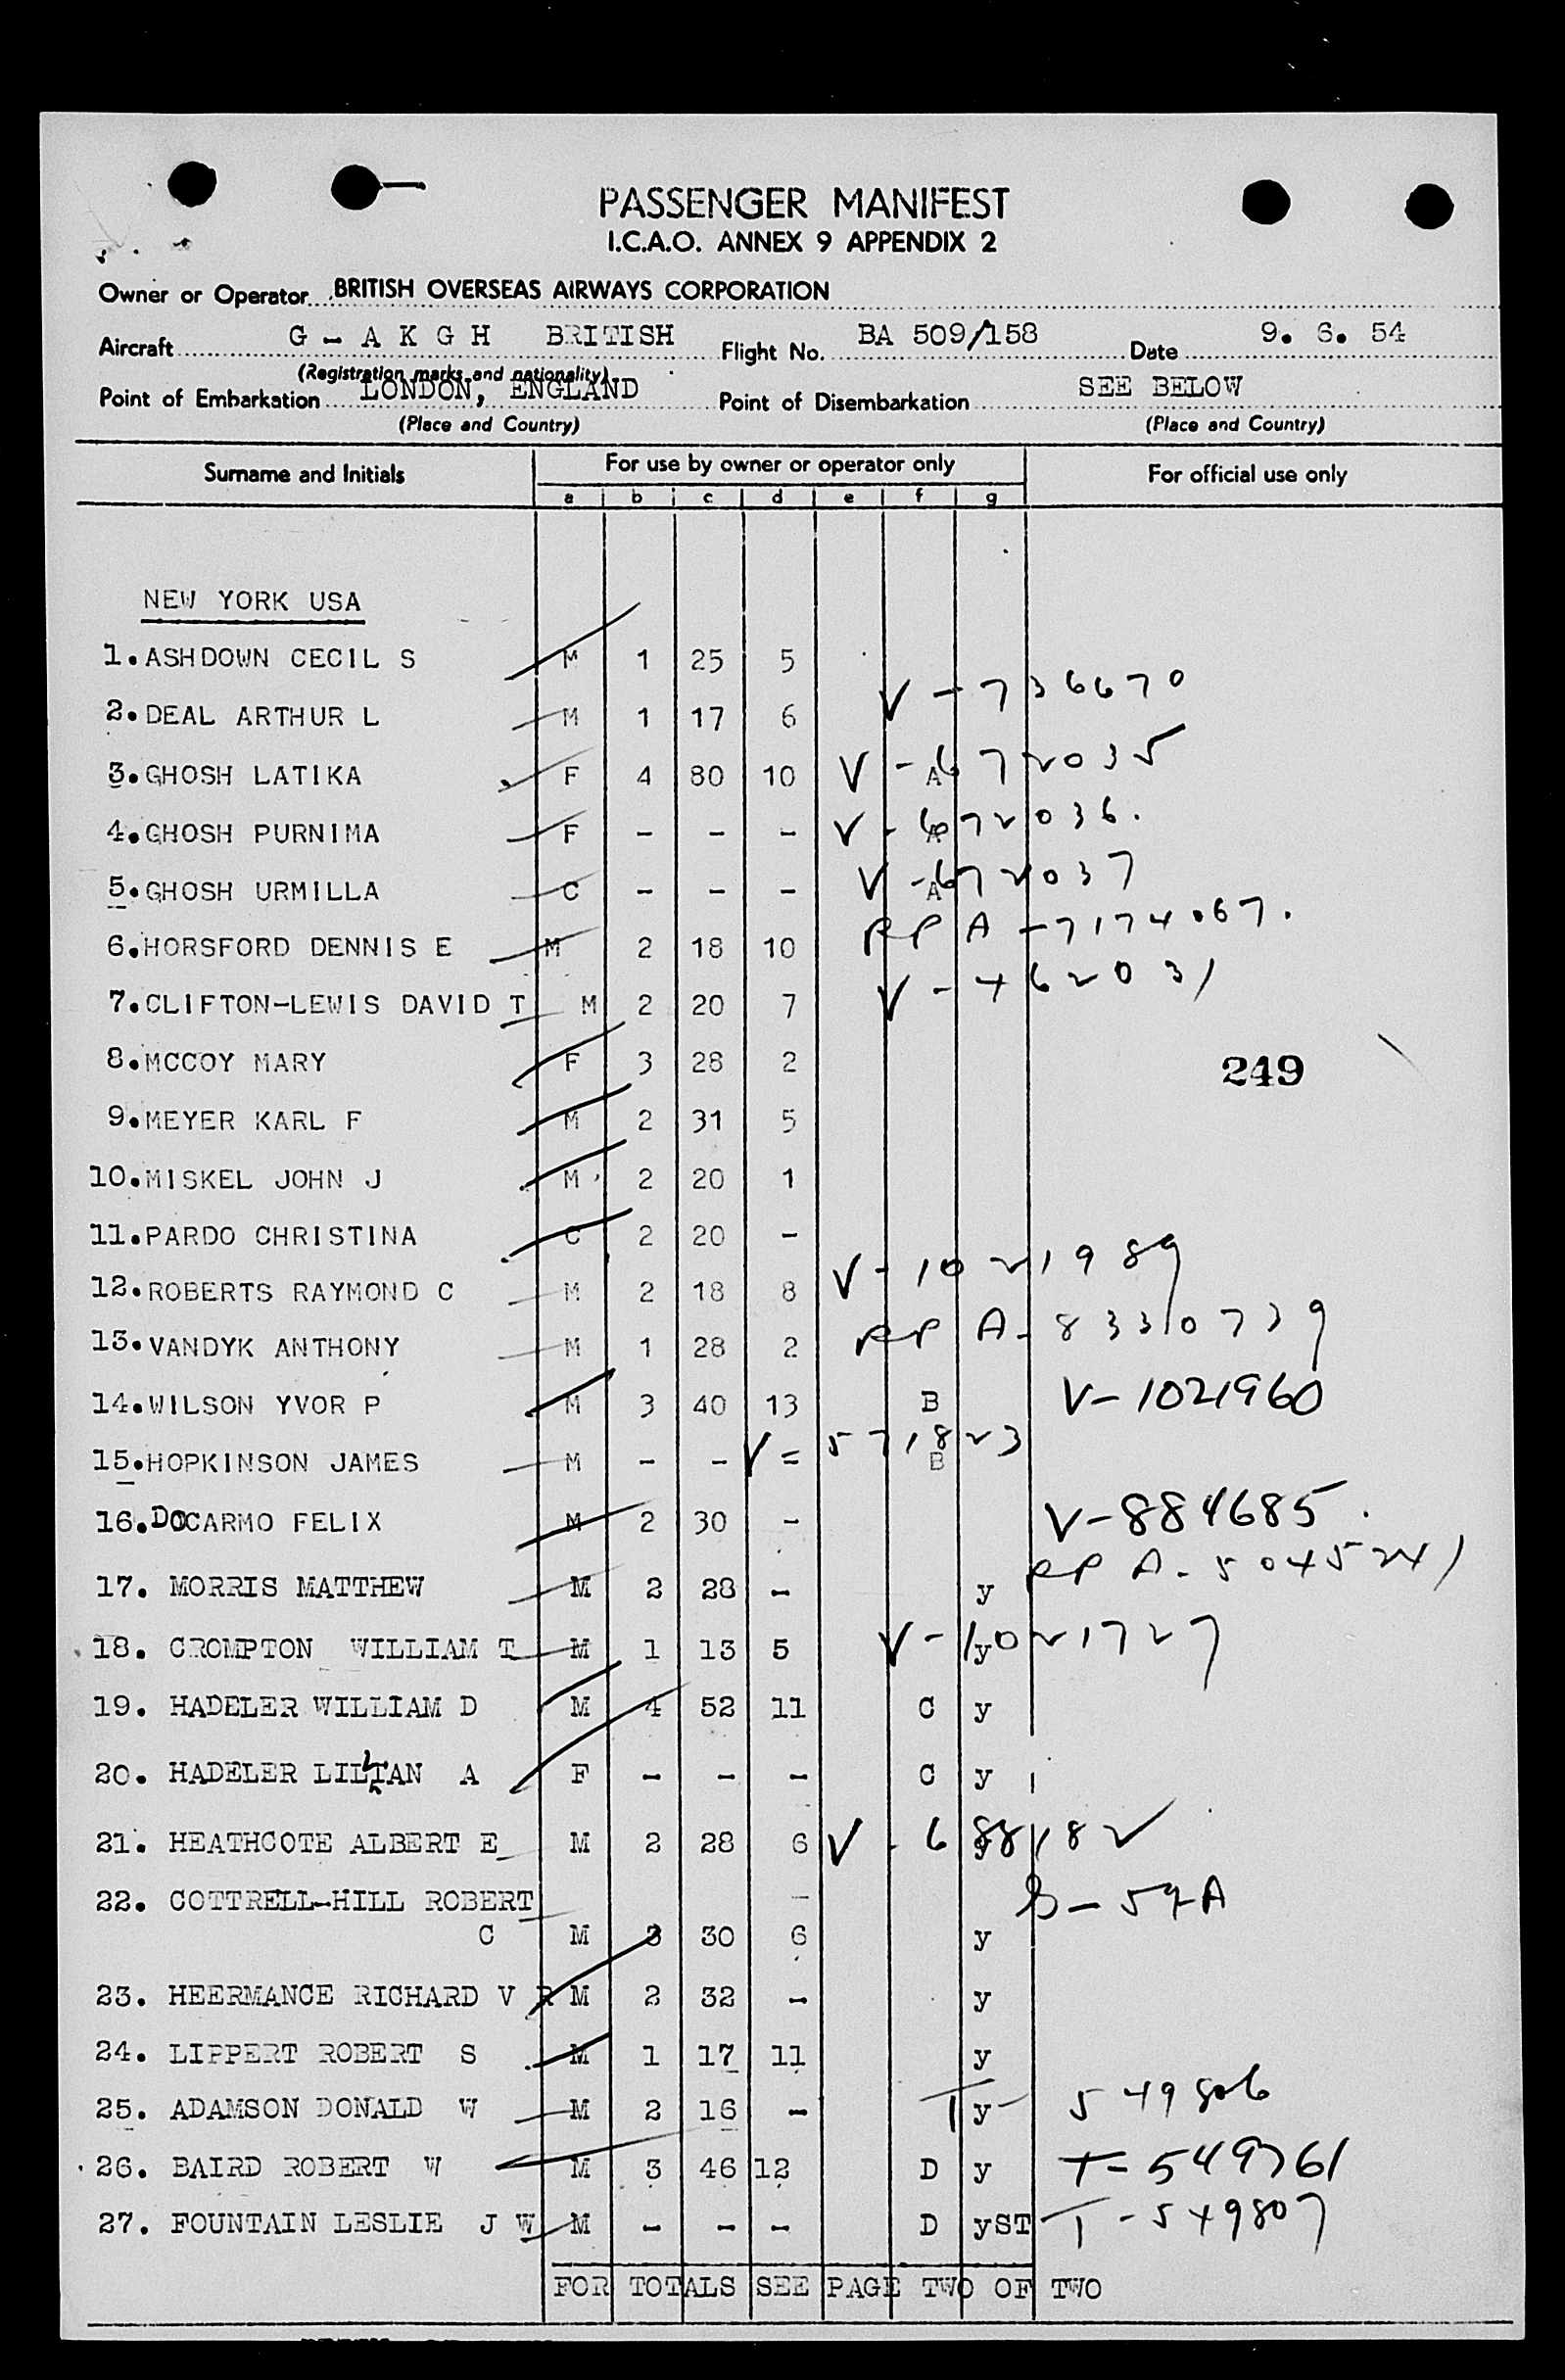 PASSENGER MANIFEST
I.C.A.O. ANNEX 9 APPENDIX 2
Owner or Operator BRITISH OVERSEAS AIRWAYS CORPORATION
Aircraft G - A K G H BRITISH Flight No. BA 509/158 Date 9. 6. 54
(Registration marks and nationality)
Point of Embarkation LONDON, ENGLAND Point of Disembarkation SEE BELOW
(Place and Country) (Place and Country)
Surname and Initials For use by owner or operator only For official use only
a b c d e f g
NEW YORK USA
1. ASHDOWN CECIL S M 1 25 5
2. DEAL ARTHUR L M 1 17 6 V - 736670
3. GHOSH LATIKA F 4 80 10 A V - 672035
4. GHOSH PURNIMA F - - - A V - 672036.
5. GHOSH URMILLA C - - - A V - 672037
6. HORSFORD DENNIS E M 2 18 10 RP A - 7174067.
7. CLIFTON-LEWIS DAVID T M 2 20 7 V - 462031
8. MCCOY MARY F 3 28 2
249
9. MEYER KARL F M 2 31 5
10. MISKEL JOHN J M 2 20 1
11. PARDO CHRISTINA C 2 20 -
12. ROBERTS RAYMOND C M 2 18 8 V - 1021989
13. VANDYK ANTHONY M 1 28 2 RP A - 8330739
14. WILSON YVOR P M 3 40 13 B V - 1021960
15. HOPKINSON JAMES M - - - B V - 571823
16. DOCARMO FELIX M 2 30 - V - 884685.
17. MORRIS MATTHEW M 2 28 - y RP A - 5045241
18. CROMPTON WILLIAM T M 1 13 5 y V - 1021727
19. HADELER WILLIAM D M 4 52 11 C y
20. HADELER LILLIAN A F - - - C y
21. HEATHCOTE ALBERT E M 2 28 6 V - 688182
22. COTTRELL-HILL ROBERT
C M 3 30 6 y
23. HEERMANCE RICHARD V R M 2 32 - y
24. LIPPERT ROBERT S M 1 17 11 y
25. ADAMSON DONALD W M 2 16 - y T - 549806
26. BAIRD ROBERT W M 3 46 12 D y T - 549761
27. FOUNTAIN LESLIE J W M - - - D yST T - 549807
FOR TOTALS SEE PAGE TWO OF TWO